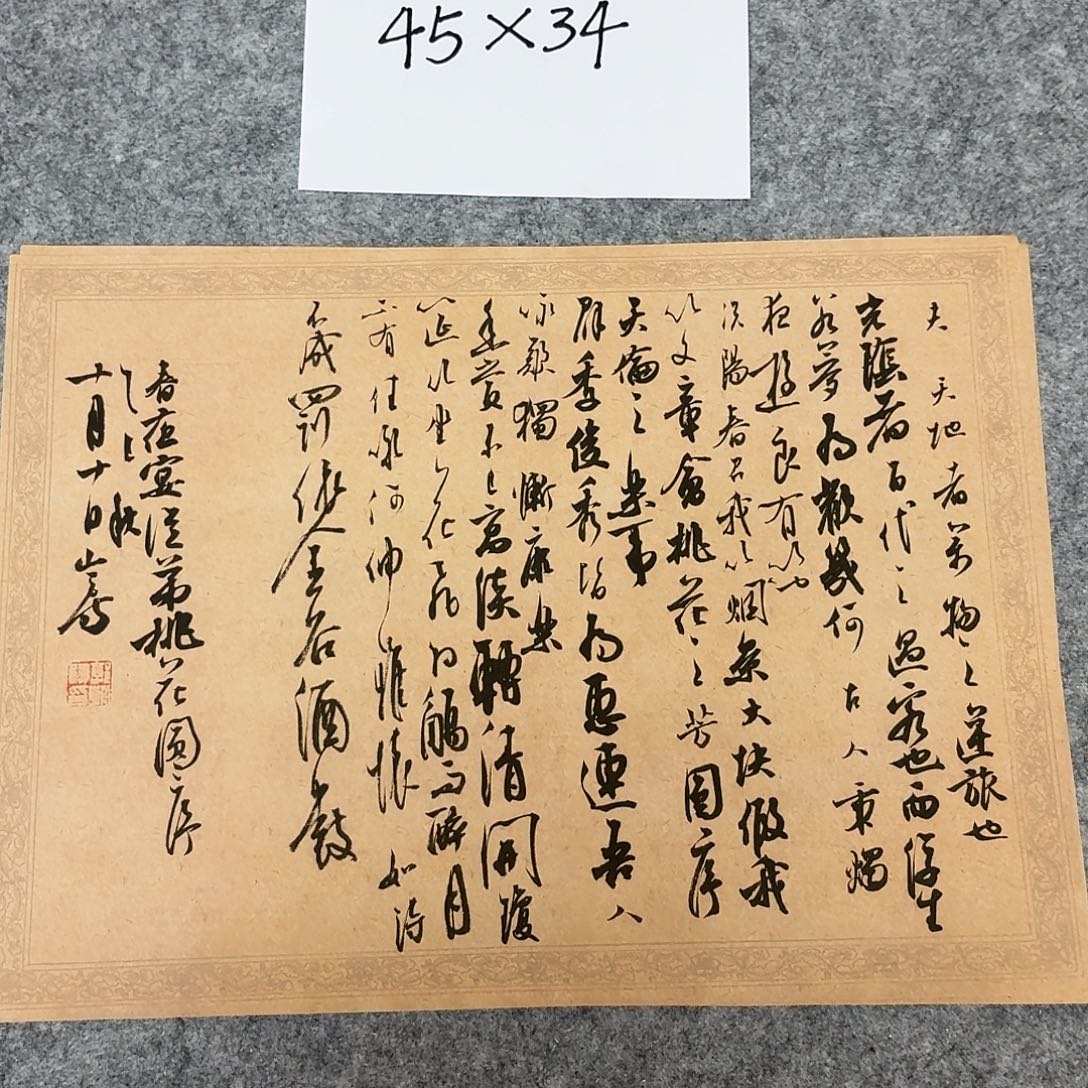 45×34
夫天地者萬物之逆旅也
光陰者百代之過客也而浮生
若夢為歡幾何古人秉燭
夜遊良有以也
況陽春召我以烟景大块假我
以文章會桃花之芳園序
天倫之樂事
群季俊秀皆為惠連吾人
咏歌獨慚康樂
幽賞未已高談轉清開瓊
筵以坐花飛羽觴而醉月
不有佳咏何伸雅懷如詩
不成罰依金谷酒數
春夜宴從弟桃花園序
秋
十月十日